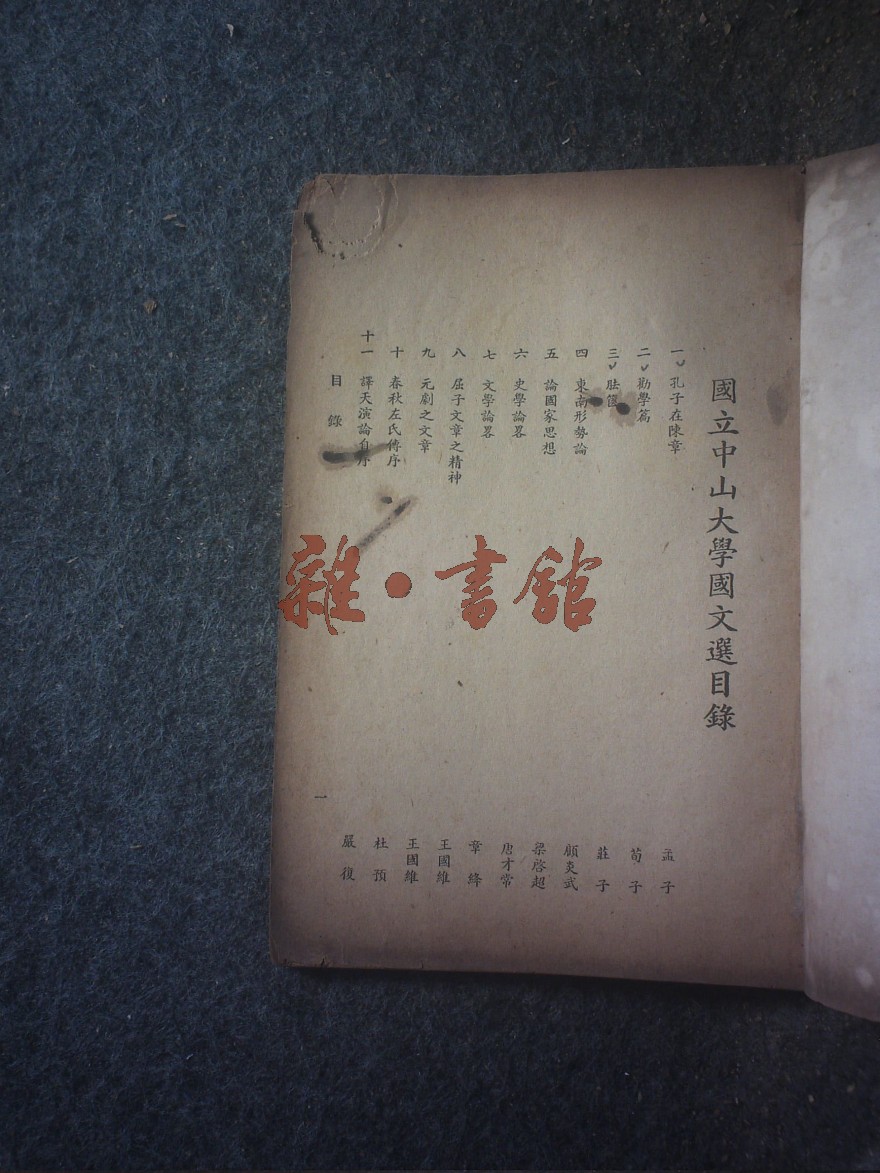 國立中山大學國文選目錄
一 孔子在陳章 孟子
二 勸學篇 荀子
三 胠篋 莊子
四 東南形勢論 顧炎武
五 論國家思想 梁啓超
六 史學論畧 唐才常
七 文學論畧 章絳
八 屈子文章之精神 王國維
九 元劇之文章 王國維
十 春秋左氏傳序 杜預
十一 譯天演論自序 嚴復
目錄 一
雜·書館